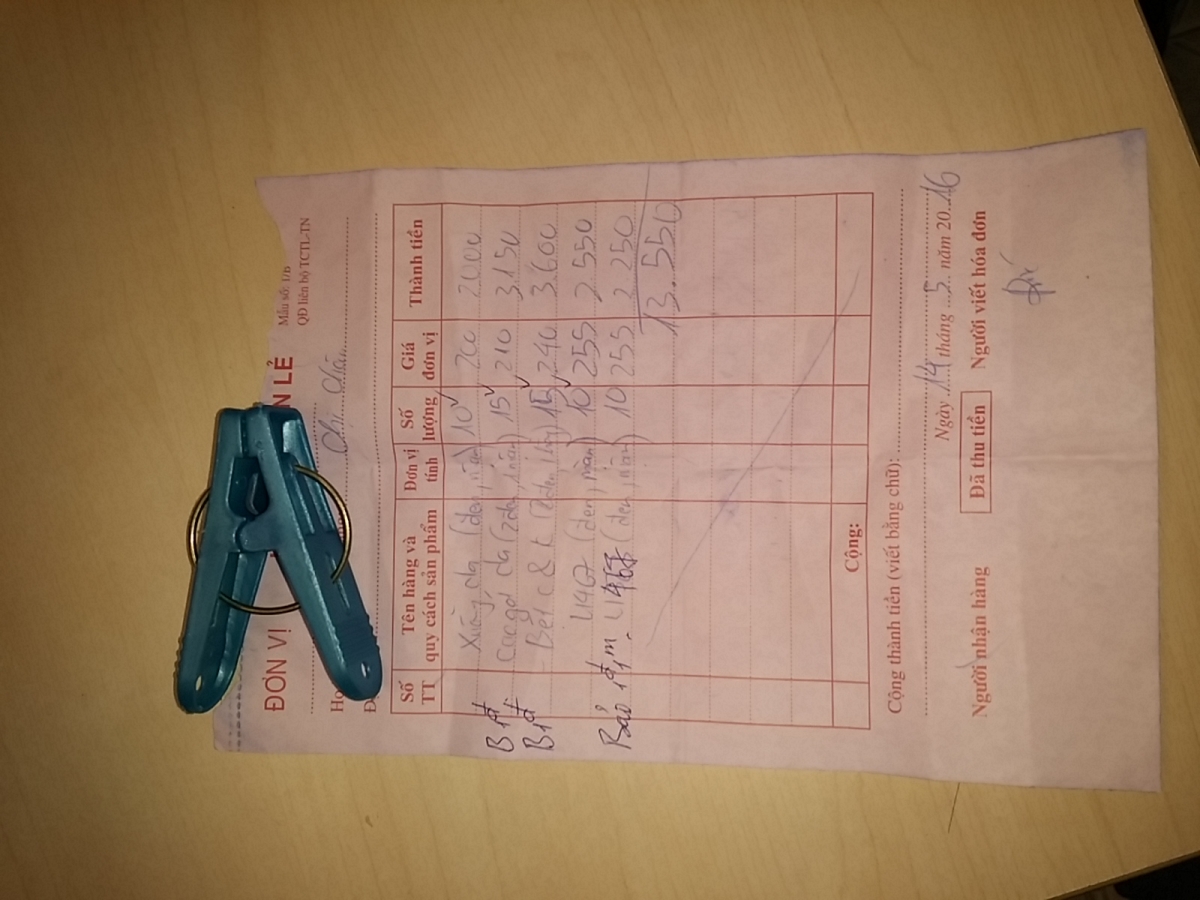 Mẫu số: 1/B
QĐ liên bộ TCTL-TN
ĐƠN VỊ N LẺ
Họ
Đ
Số TT Tên hàng và quy cách sản phẩm Đơn vị tính Số lượng Giá đơn vị Thành tiền
da (đen, nâu) 10 200 2000
B1đ da (2đen, 1nâu) 15 210 3.150
B1đ 15 240 3.600
U467 (đen, nâu) 10 255 2.550
Bảo 1đ, 1m U467 (đen, nâu) 10 255 2.250
13.550
Cộng:
Cộng thành tiền (viết bằng chữ):
Ngày 14 tháng 5 năm 2016
Người nhận hàng Đã thu tiền Người viết hóa đơn